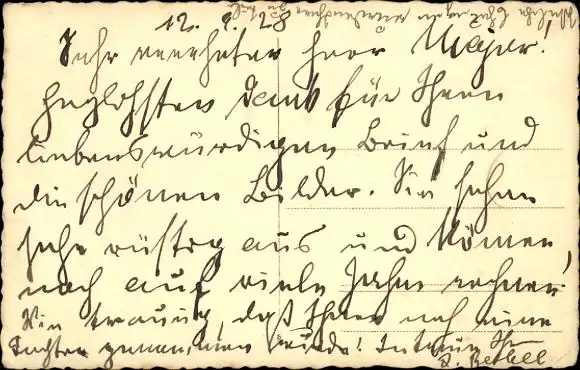 12. 9. 28
Sehr verehrter Herr Meyer!
Herzlichsten Dank für Ihren
liebenswürdigen Brief und
die schönen Bilder. Sie sehen
sehr rüstig aus und können
noch auf viele Jahre rechnen.
Wie traurig, daß Ihnen noch eine
Tochter genommen wurde! In Treue Ihr